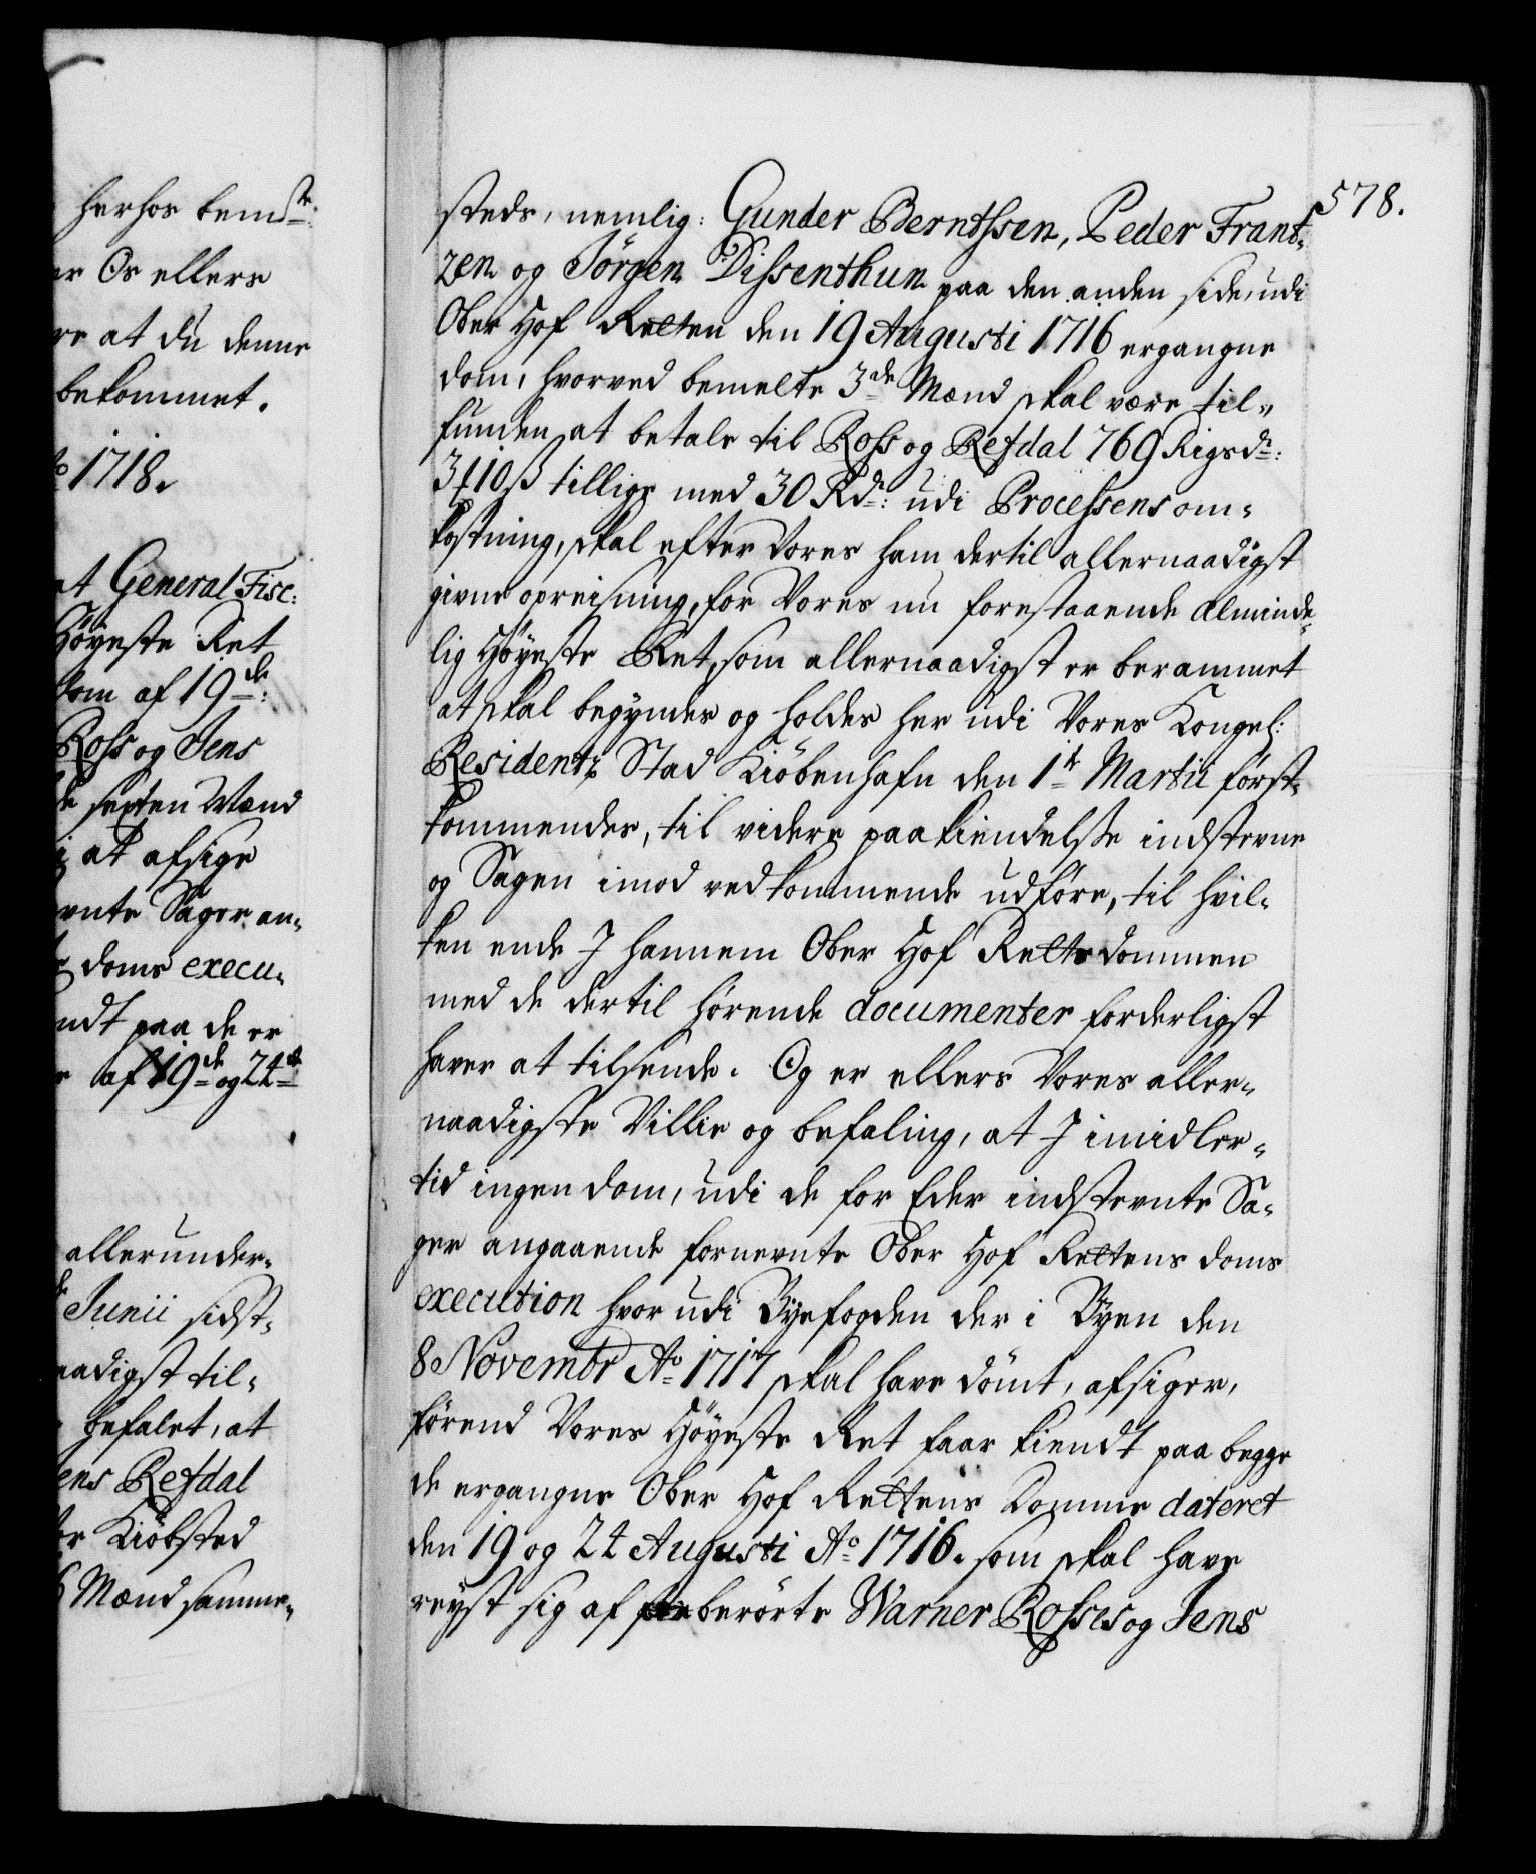 herhos bemte:
er Os ellers
re at du denne
bekommet.
o 1718.
at General Fisc:
Höyeste Ret
dom af 19de:
Ross og Jens
de sexten Mænd
at afsige
vnte Sager an-
doms execu-
ndt paa de er
af 19de og 24de
allerunder-
Junii sidst-
naadigst til-
befalet, at
ens Refdal
Kiöbsted
6 Mænd samme-
578.
steds, nemlig: Gunder Berntssen, Peder Frant-
zen og Jörgen Dissenthun paa den anden side, udi
Ober Hof Retten den 19 Augusti 1716 ergangne
dom, hvorved bemelte 3de Mænd skal være til-
funden at betale til Ross og Refdal 769 Rigsdr:
3 ₰ 10 ß tillige med 30 Rdr: udi Processens om-
kostning, skal efter Vores ham dertil allernaadigst
givne opreisning, for Vores nu forestaaende alminde-
lig Höyeste Ret, som allernaadigst er berammet
at skal begyndes og holdes her udi Vores Kongel:
Residentz Stad Kiöbenhafn den 1te Martii först-
kommendes, til videre paakiendelse indstevne
og Sagen imod vedkommende udföre, til hvil-
ken ende I hannem Ober Hof Retts dommen
med de dertil hörende documenter forderligst
haver at tilsende. Og er ellers Vores aller-
naadigste Villie og befaling, at I imidler-
tid ingen dom, udi de for Eder indstevnte Sa-
ger angaaende fornevnte Ober Hof Rettens doms
execution hvor udi Byefogden der i Byen den
8 Novembr Ao 1717 skal have dömt, afsiger,
förend Vores Höyeste Ret faar kiendt paa begge
de ergangne Ober Hof Rettens Domme dateret
den 19 og 24 Augusti Ao 1716. som skal have
reyst sig af berörte Warner Rosses og Jens